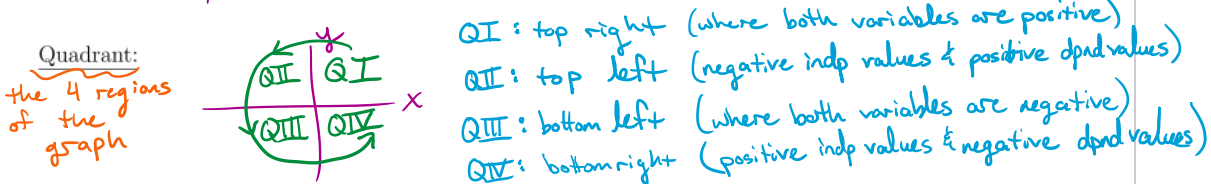 Quadrant:
the 4 regions
of the
graph
y
QII QI
x
QIII QIV
QI : top right (where both variables are positive)
QII : top left (negative indp values & positive dpnd values)
QIII : bottom left (where both variables are negative)
QIV : bottom right (positive indp values & negative dpnd values)